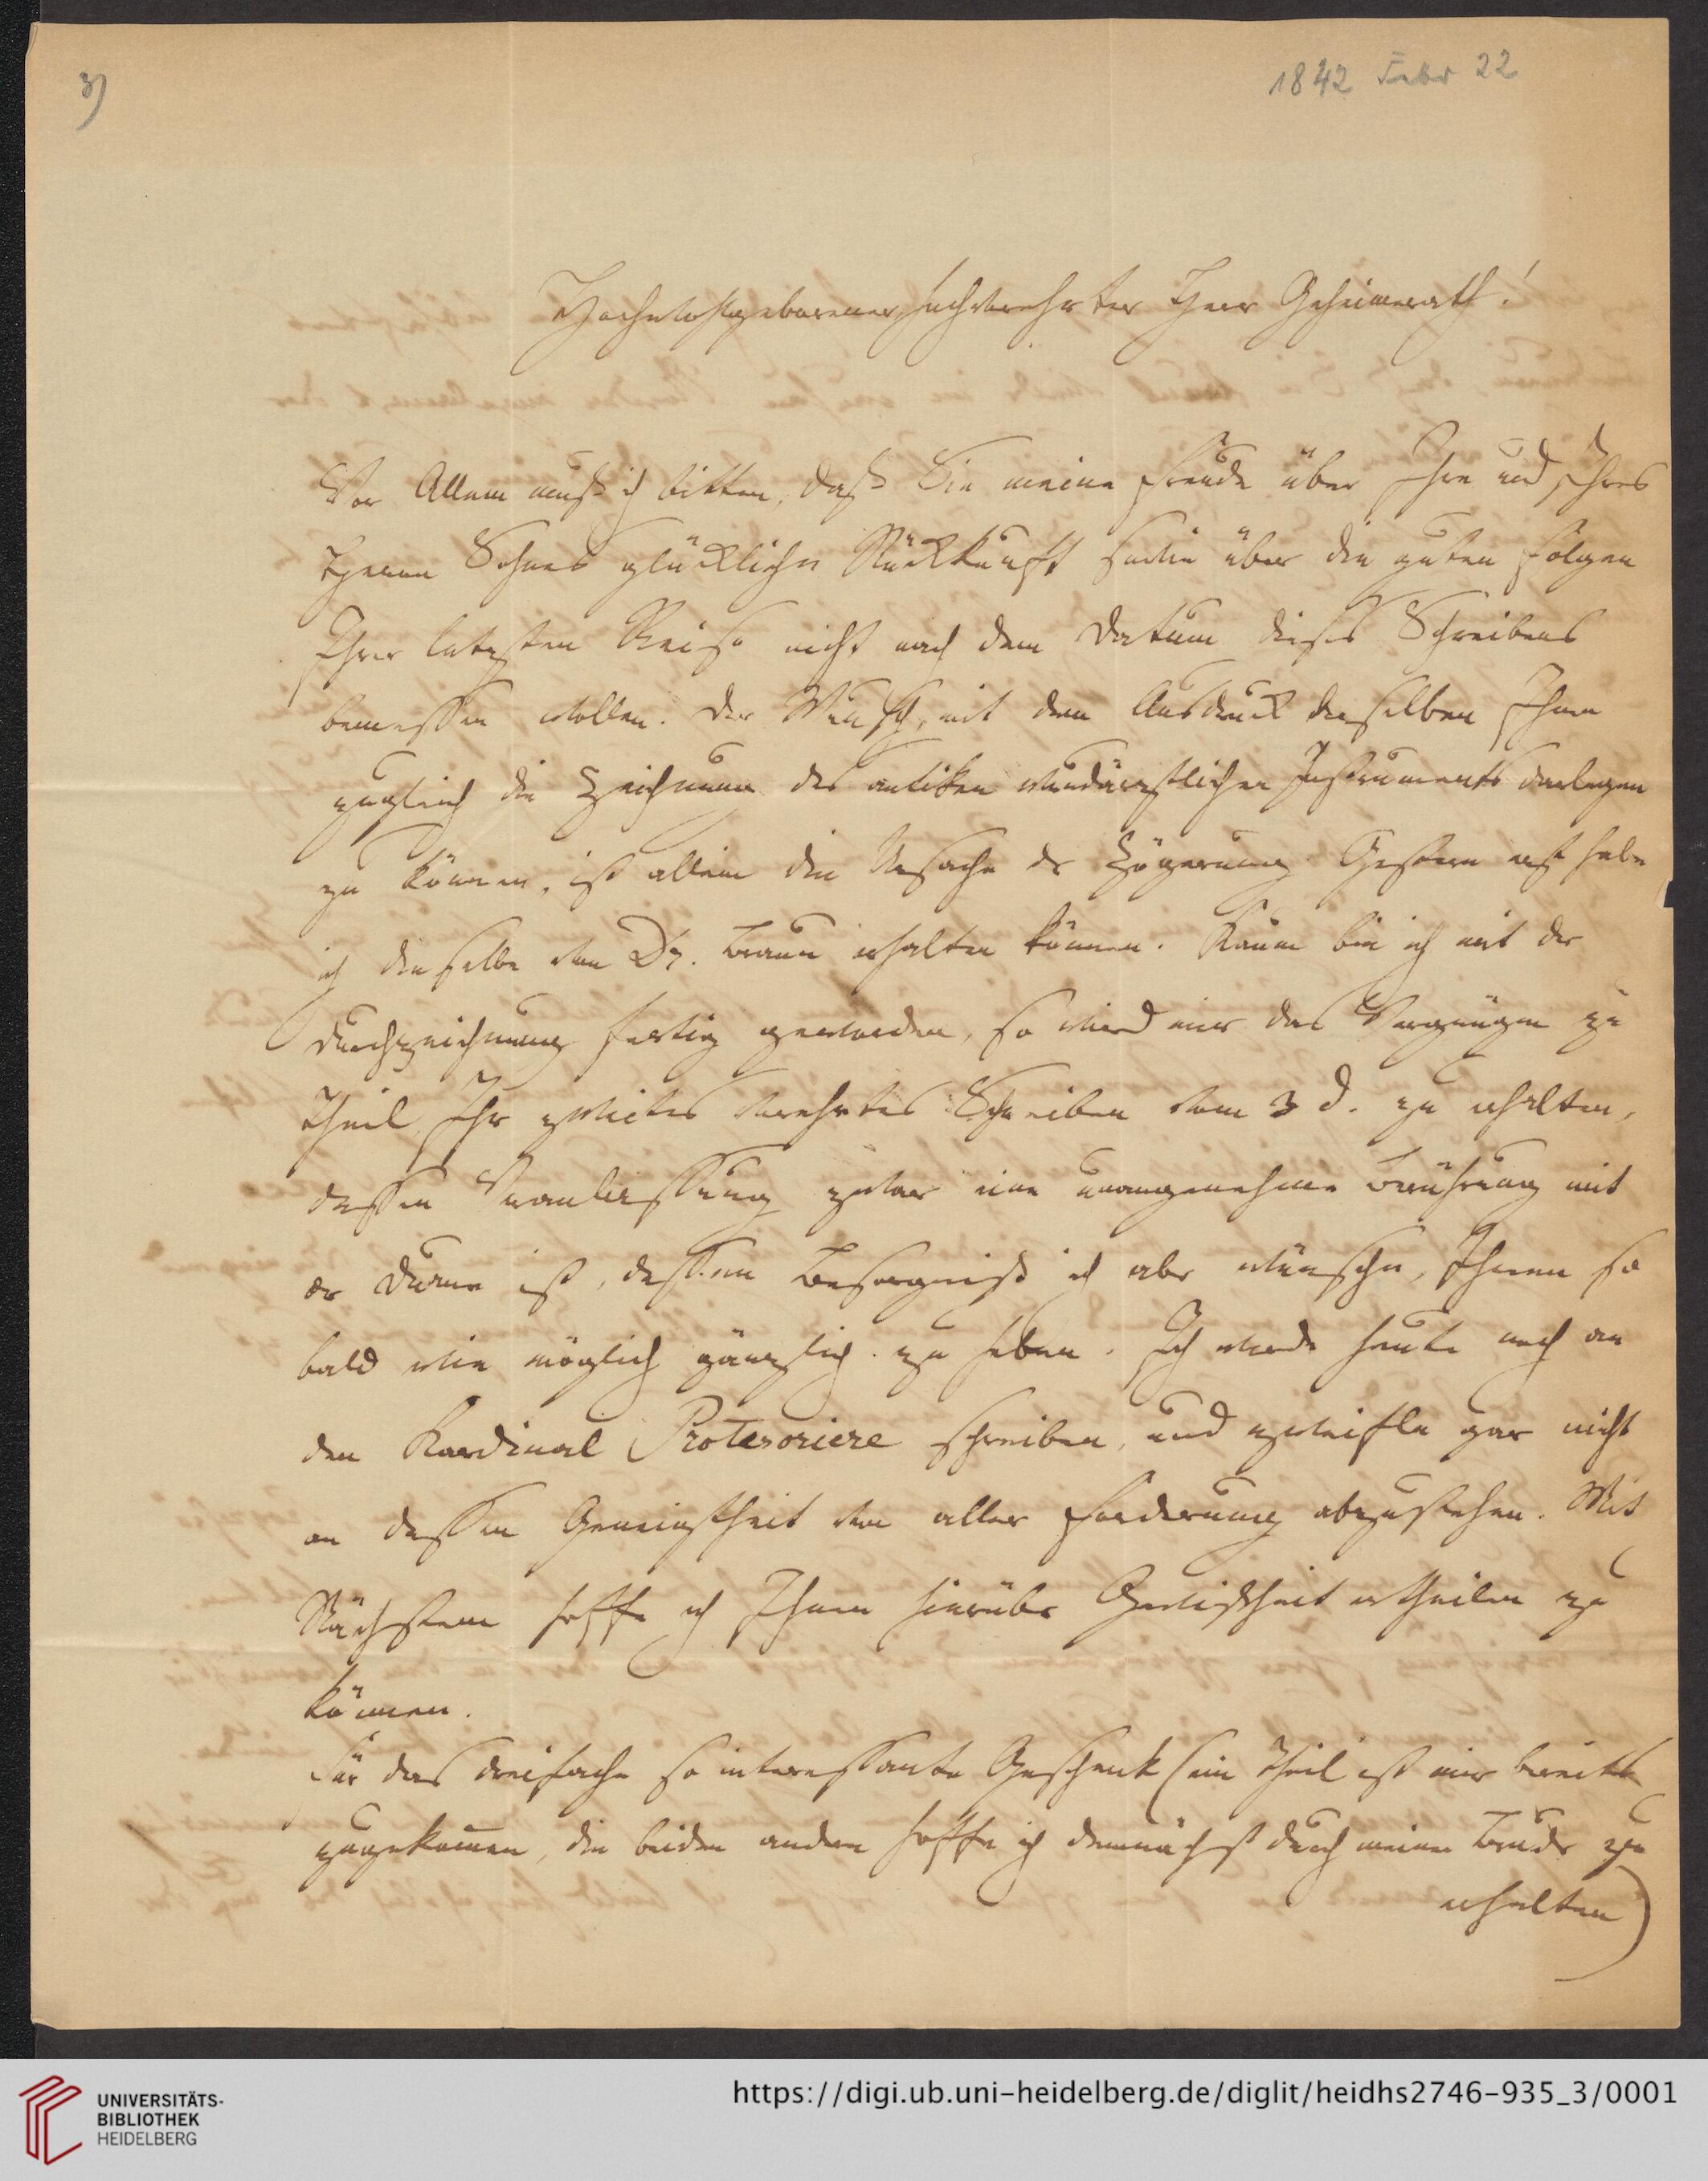 3)
1842 Febr 22
Hochwohlgeborener, hochverehrter Herr Geheimerath!
Vor Allem muß ich bitten, daß Sie meine Freude über Ihre und Ihres
Herrn Sohnes glückliche Rückkunft sowie über die guten Folgen
Ihrer letzten Reise nicht nach dem Datum dieses Schreibens
bemessen wollen. Der Wunsch, mit dem Ausdruck derselben Ihnen
zugleich die Zeichnung des antiken wundärztlichen Instruments vorlegen
zu können, ist allein die Ursache der Zögerung. Gestern erst habe
ich dieselbe von Dr. Braun erhalten können. Kaum bin ich mit der
Durchzeichnung fertig geworden, so wird mir das Vergnügen zu
Theil Ihr zweites verehrtes Schreiben vom 3 d. zu erhalten,
dessen Veranlassung zwar eine unangenehme Berührung mit
der ist, dessen Besorgniß ich aber wünsche, Ihnen so
bald wie möglich gänzlich zu heben. Ich werde heute noch an
den Kardinal Protesoriere schreiben, und zweifle gar nicht
an dessen Geneigtheit von aller Forderung abzustehen. Mit
Nächstem hoffe ich Ihnen hierüber Gewißheit ertheilen zu
können.
Für das dreifache so interessante Geschenk (ein Theil ist mir bereits
zugekommen, die beiden andern hoffe ich demnächst durch meinen Bruder zu
erhalten)
UNIVERSITÄTS-
BIBLIOTHEK
HEIDELBERG
https://digi.ub.uni-heidelberg.de/diglit/heidhs2746-935_3/0001